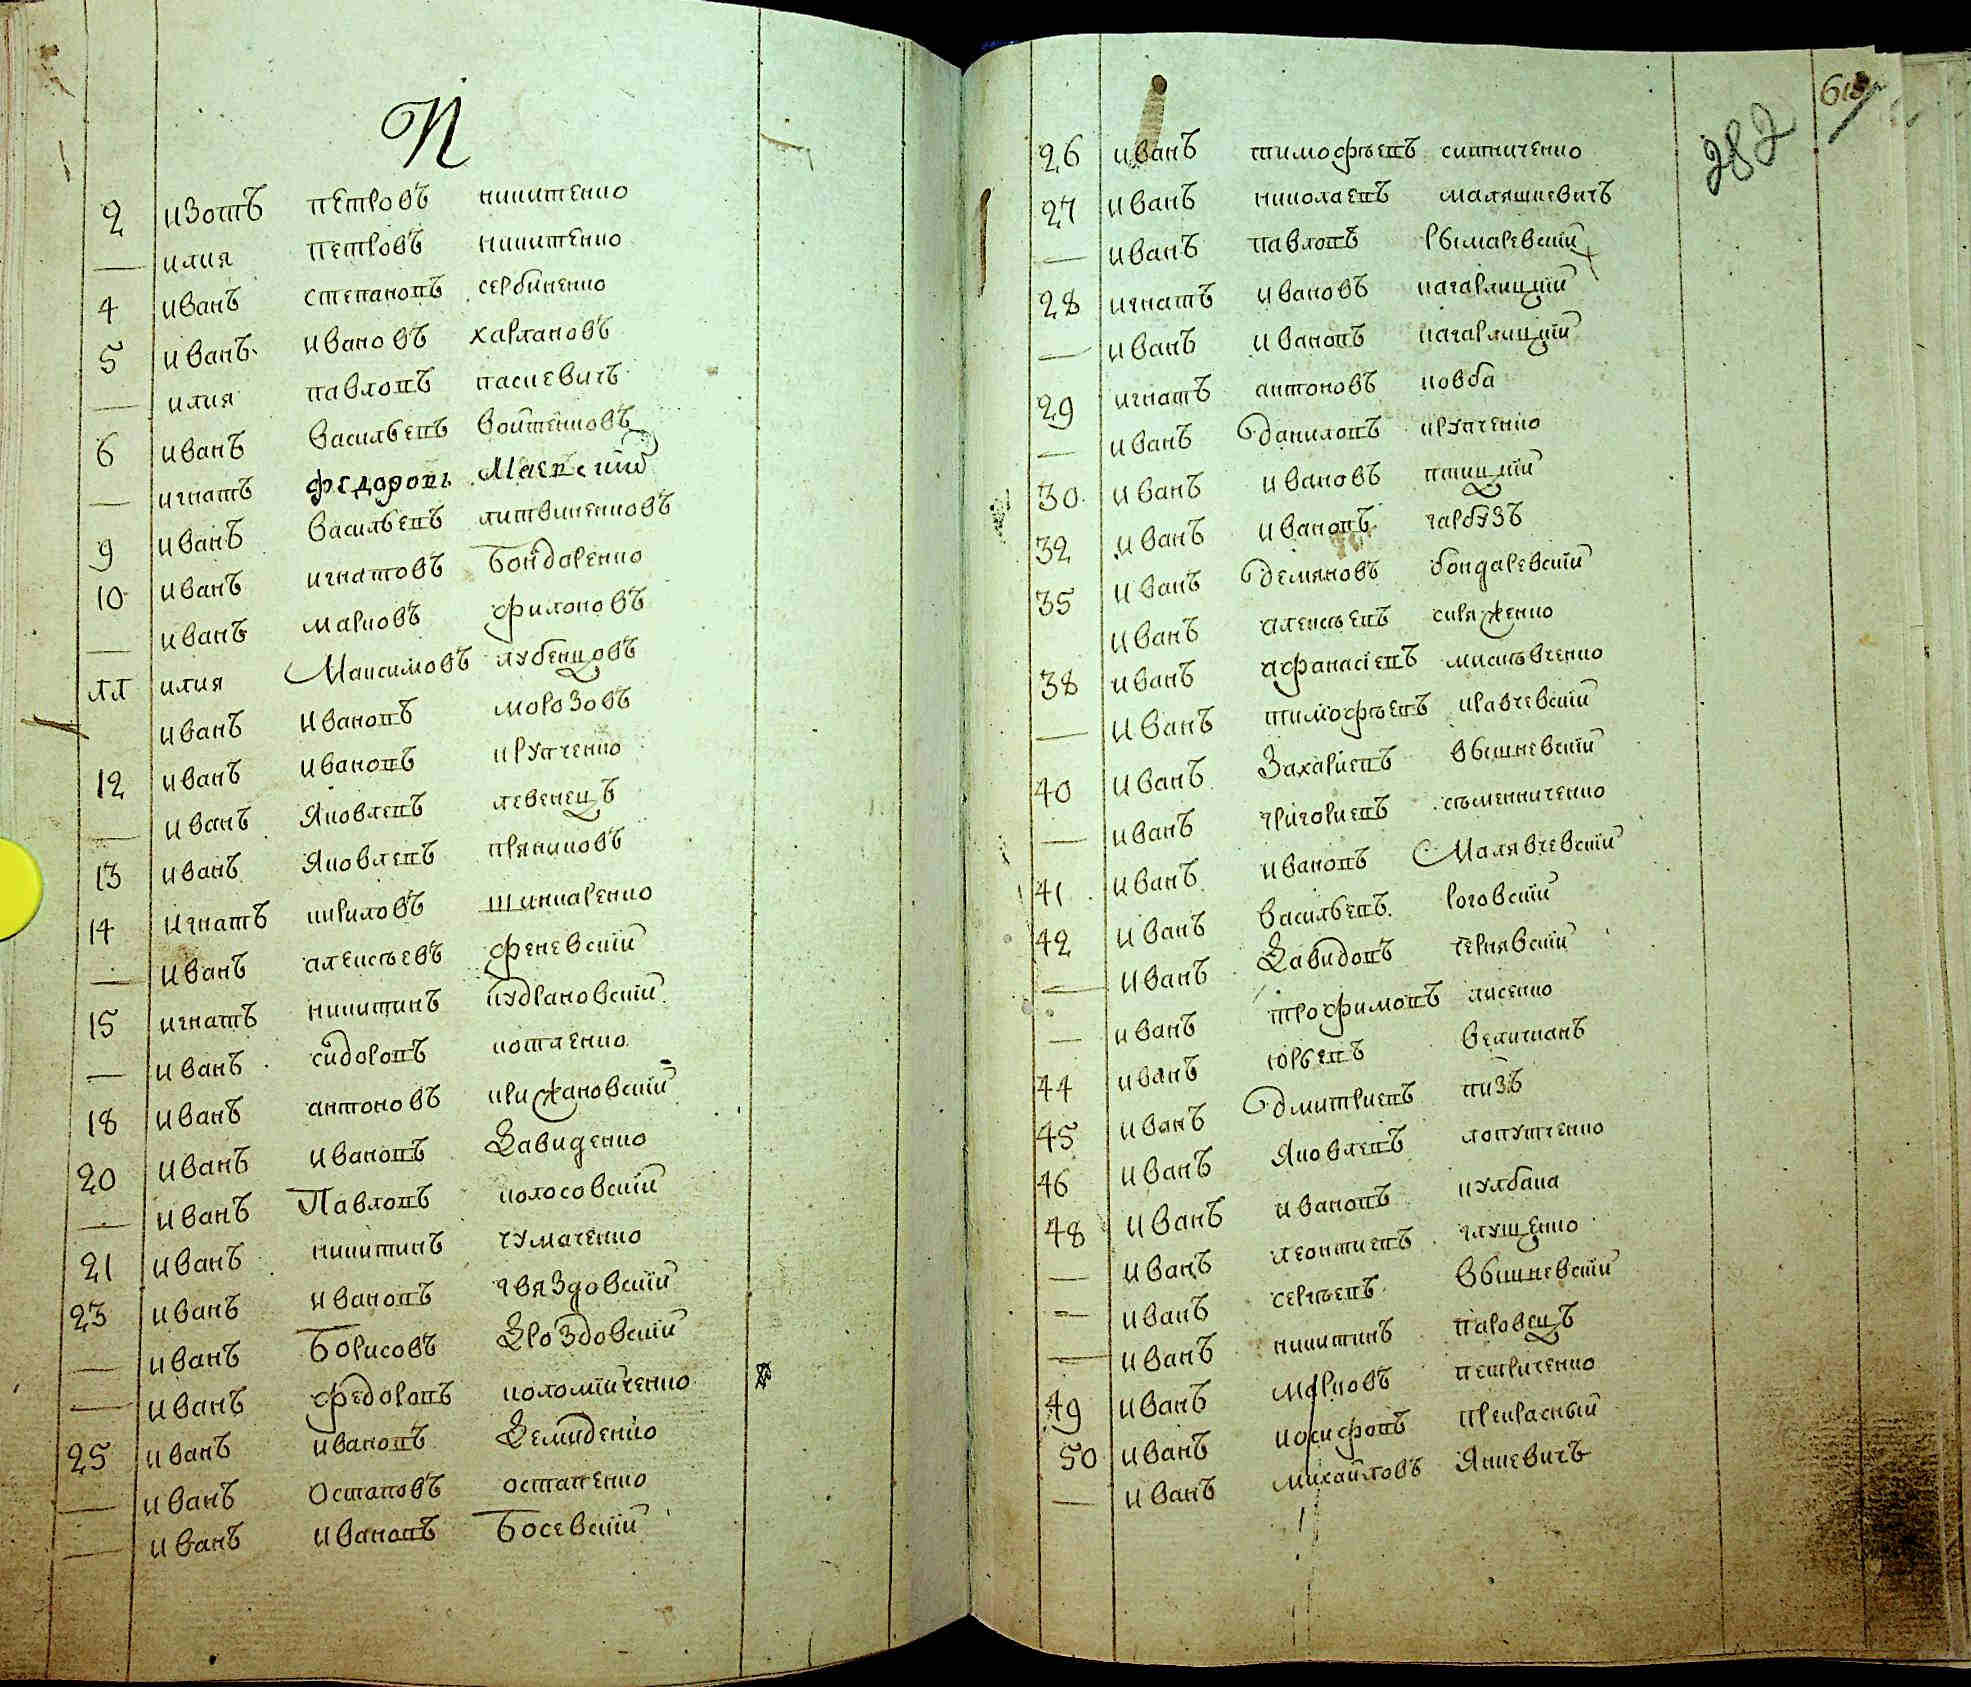 И
2 изотъ петровъ никитенко
— илия петровъ никитенко
4 иванъ степановъ сербиненко
5 иванъ ивановъ харлановъ
— илия павловъ паскевичъ
6 иванъ васильевъ войтенковъ
— игнатъ федоровъ Маевский
9 иванъ васильевъ литвиненковъ
10 иванъ игнатовъ Бондаренко
— иванъ марковъ филоновъ
11 илия Максимовъ лубенцовъ
иванъ ивановъ морозовъ
12 иванъ ивановъ крупченко
— иванъ Яковлевъ левенецъ
13 иванъ Яковлевъ пряниковъ
14 игнатъ кириловъ шинкаренко
— иванъ алексѣевъ феневский
15 игнатъ никитинъ кудрановский
— иванъ сидоровъ котленко
18 иванъ антоновъ крижановский
20 иванъ ивановъ Давиденко
— иванъ Павловъ колосовский
21 иванъ никитинъ чумаченко
23 иванъ ивановъ гвяздовский
— иванъ Борисовъ Дроздовский
— иванъ федоровъ коломийченко
25 иванъ ивановъ Демиденко
— иванъ Остаповъ остапенко
— иванъ ивановъ Босевский
282
26 иванъ тимофѣевъ ситниченко
27 иванъ николаевъ маляшкевичъ
— иванъ павловъ рымаревский
28 игнатъ ивановъ кагарлицкий
— иванъ ивановъ кагарлицкий
29 игнатъ антоновъ ковба
— иванъ даниловъ крупченко
30 иванъ ивановъ птицкий
32 иванъ ивановъ гарбузъ
35 иванъ демяновъ бондаревский
иванъ алексѣевъ скряженко
38 иванъ афанасиевъ мисковченко
— иванъ тимофѣевъ кравчевский
40 иванъ Захариевъ вышневский
— иванъ григориевъ сѣменниченко
41 иванъ ивановъ Малявчевский
42 иванъ васильевъ роговский
— иванъ Давидовъ чернявский
— иванъ трофимовъ лисенко
44 иванъ юрьевъ величканъ
45 иванъ дмитриевъ пизъ
46 иванъ Яковлевъ лопутченко
48 иванъ ивановъ кулбака
— иванъ леонтиевъ глущенко
— иванъ сергѣевъ вышневский
— иванъ никитинъ паровецъ
49 иванъ марковъ петриченко
50 иванъ иосифовъ прекрасный
— иванъ михайловъ Янкевичъ